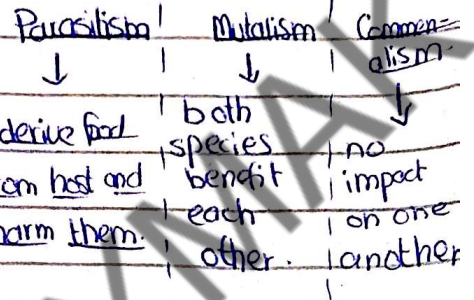 Parasitism Mutalism Commen=
alism.
derive food
om host and
harm them.
both
species
benefit
each
other.
no
impact
on one
another
YMAK